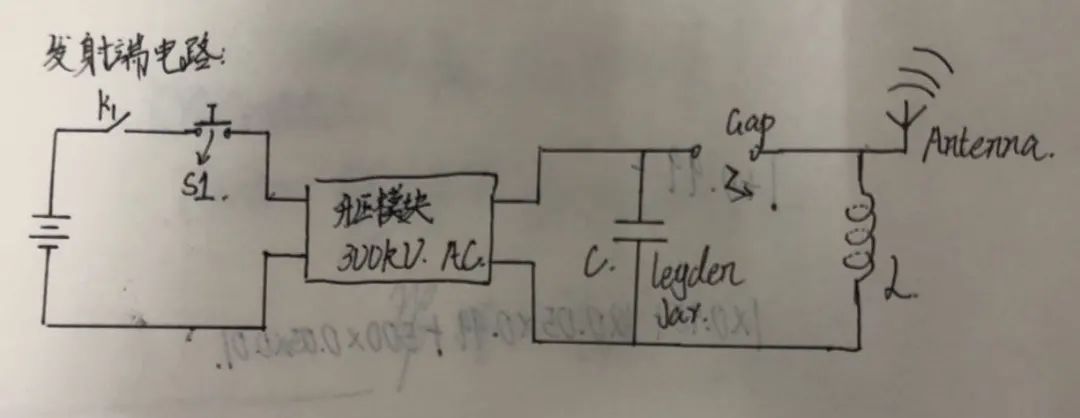 发射端电路:
K1
S1.
升压模块
300kV. AC.
C.
leyden
Jar.
Gap
L
Antenna.